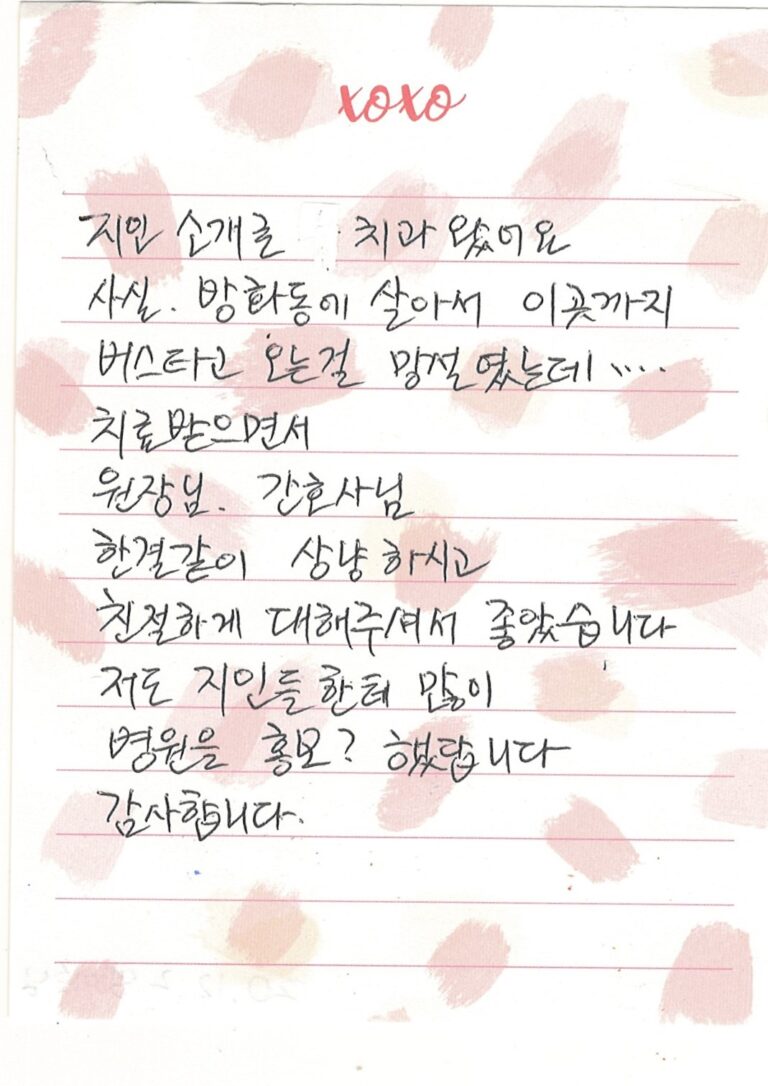 xoxo
지인 소개로 치과 왔어요
사실. 방화동에 살아서 이곳까지
버스타고 오는걸 망설였는데....
치료받으면서
원장님. 간호사님
한결같이 상냥하시고
친절하게 대해주셔서 좋았습니다
저도 지인들한테 많이
병원을 홍보? 했답니다
감사합니다.